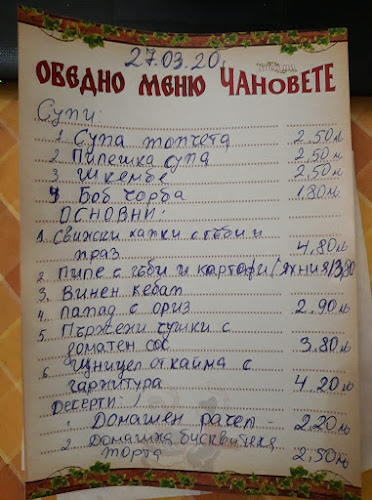 27.03.20.
ОБЕДНО МЕНЮ ЧАНОВЕТЕ
Супи:
1. Супа топчета 2,50лв
2. Пилешка супа 2,50лв
3. Шкембе 2,50лв
4. Боб чорба 1,80лв
ОСНОВНИ:
1. Свински хапки с гъби и
праз 4,80лв
2. Пиле с гъби и картофи/яхния/3,80
3. Винен кебап
4. Лапад с ориз 2.90лв
5. Пържени чушки с
доматен сос 3.80лв
6. Шницел от кайма с
гарнитура 4.20лв
Десерти:
1. Домашен рачел - 2,20лв
2. Домашна бисквитена
торта 2,50лв